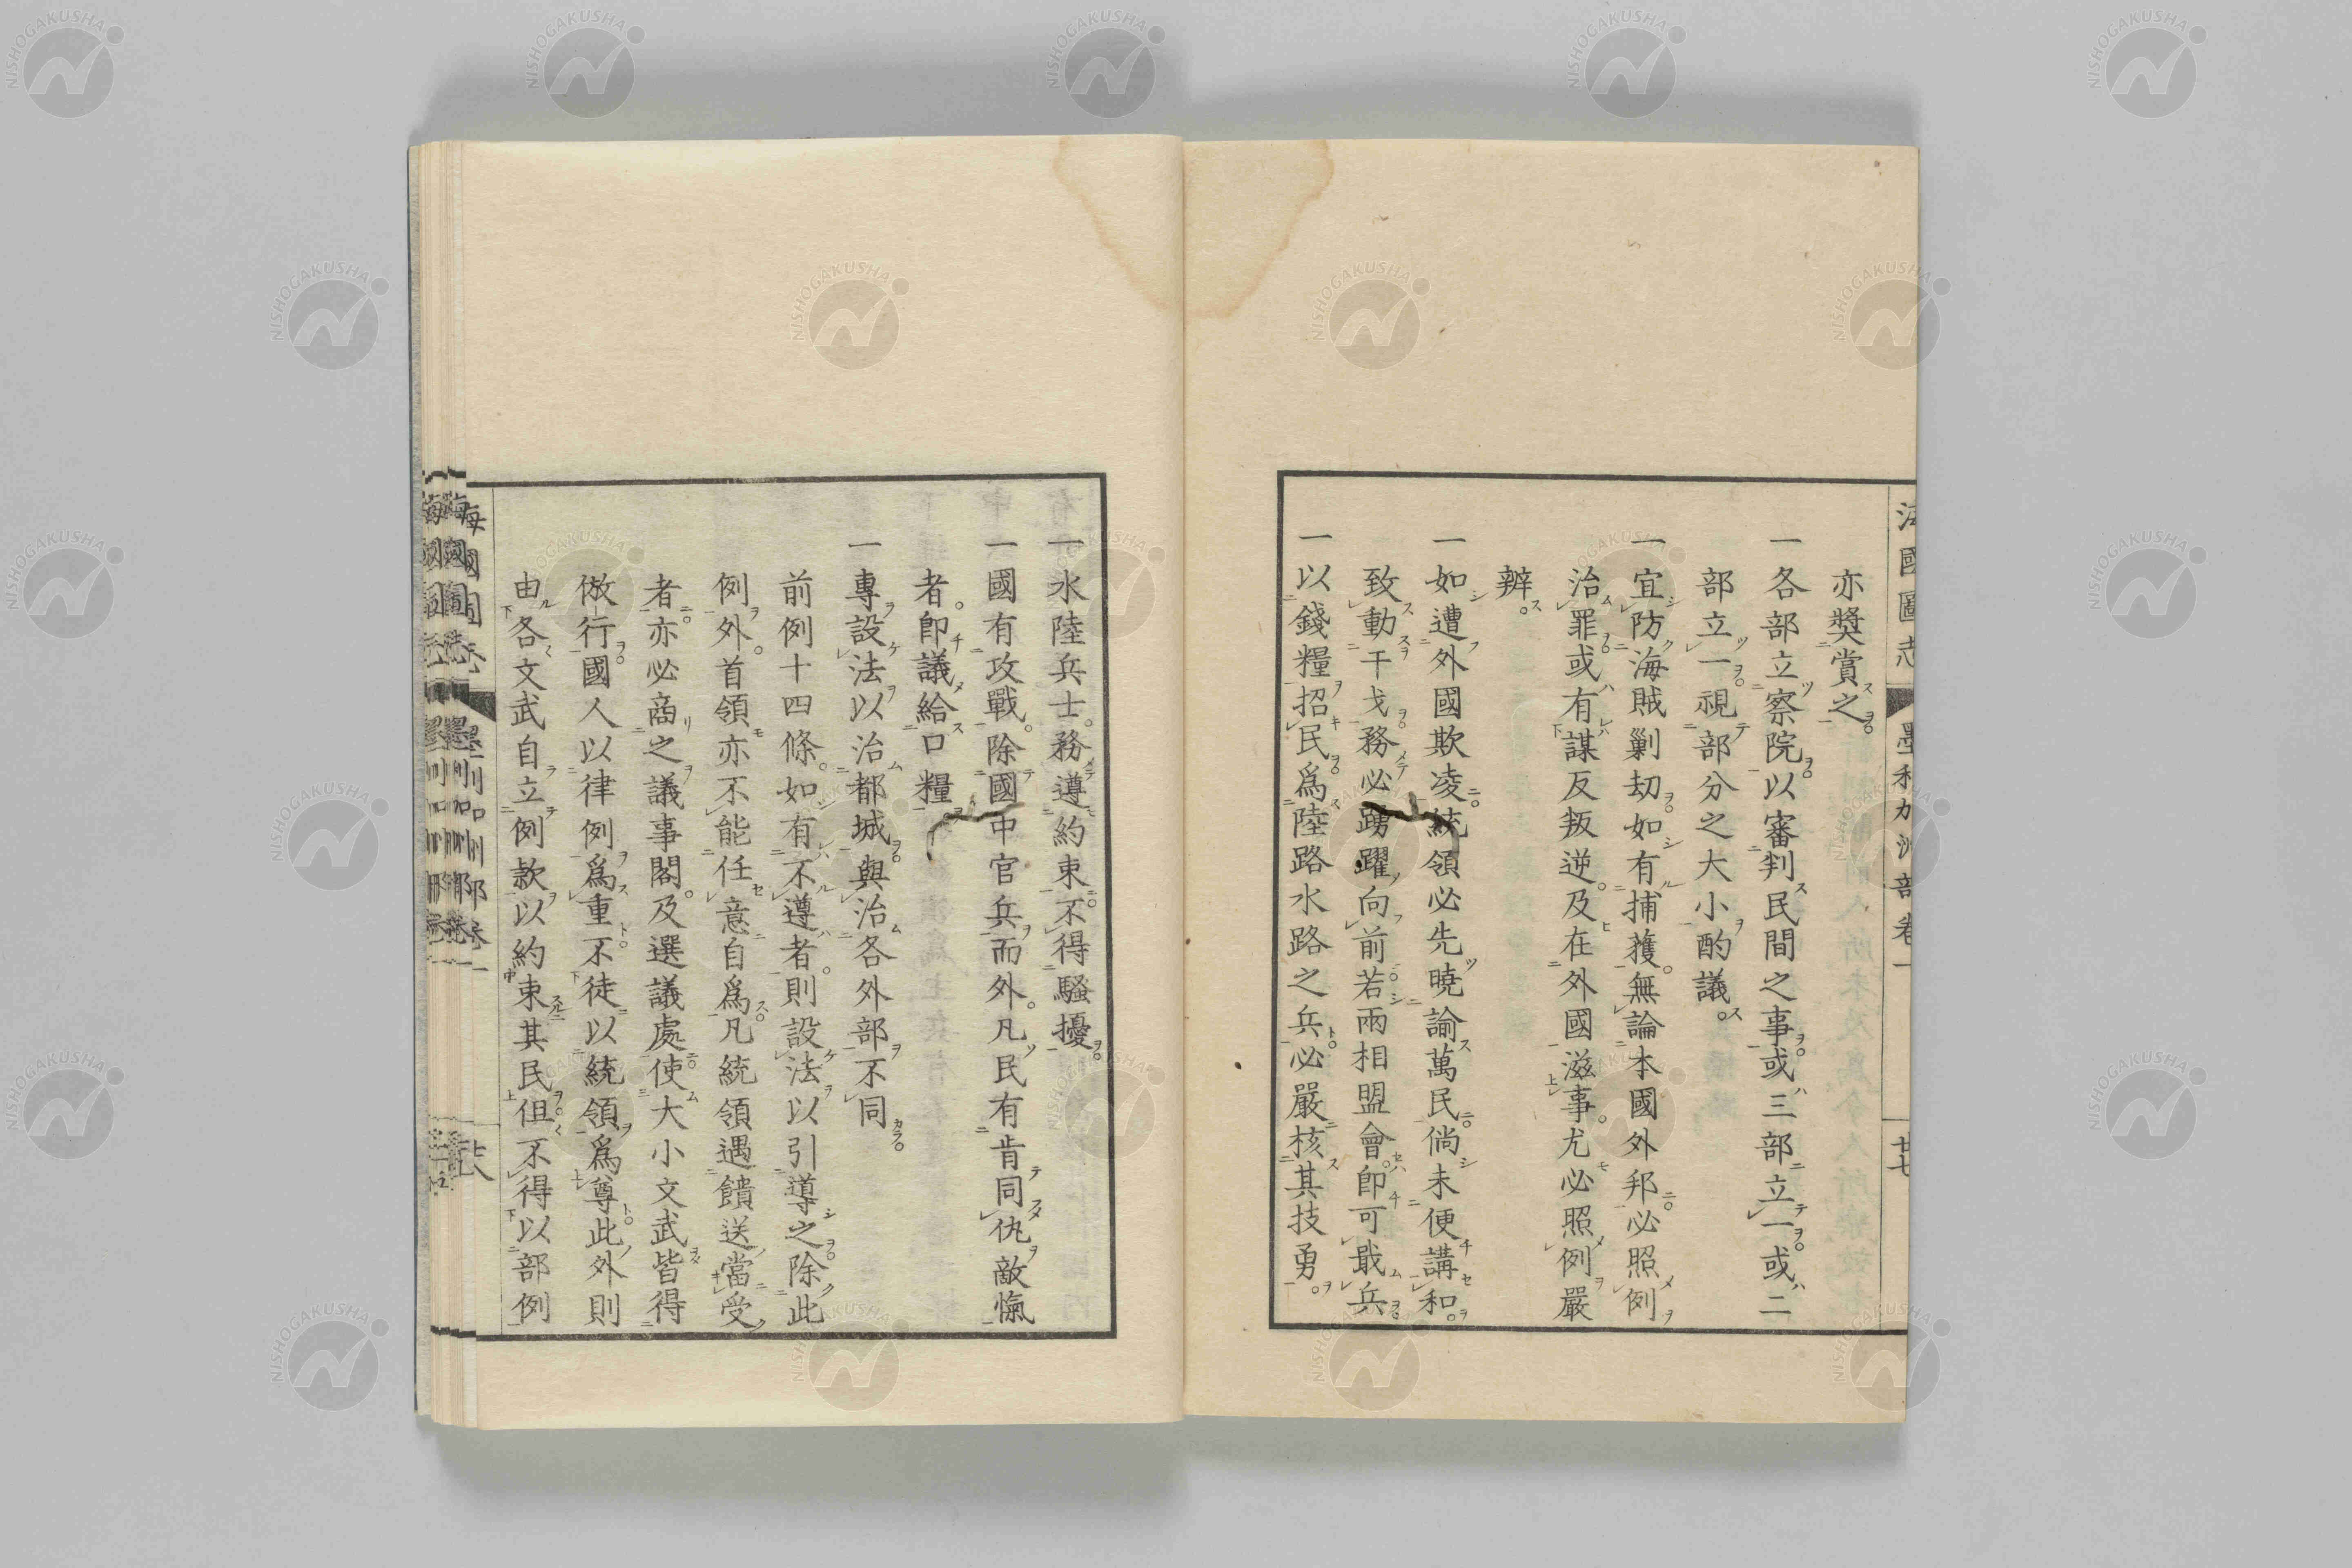 亦獎賞之
一各部立察院以審判民間之事或三部立一或二
部立一視部分之大小酌議
一宜防海賊剿劫如有捕獲無論本國外邦必照例
治罪或有謀反叛逆及在外國滋事尤必照例嚴
辦
一如遭外國欺凌統領必先曉諭萬民倘未便講和
致動干戈務必踴躍向前若兩相盟會卽可戢兵
一以錢糧招民爲陸路水路之兵必嚴核其技勇
一水陸兵士務遵約束不得騷擾
一國有攻戰除國中官兵而外凡民有肯同仇敵愾
者卽議給口糧
一專設法以治都城與治各外部不同
前例十四條如有不遵者則設法以引導之除此
例外首領亦不能任意自爲凡統領遇饋送當受
者亦必商之議事閣及選議處使大小文武皆得
倣行國人以律例爲重不徒以統領爲尊此外則
由各文武自立例款以約束其民但不得以部例
NISHOGAKUSHA